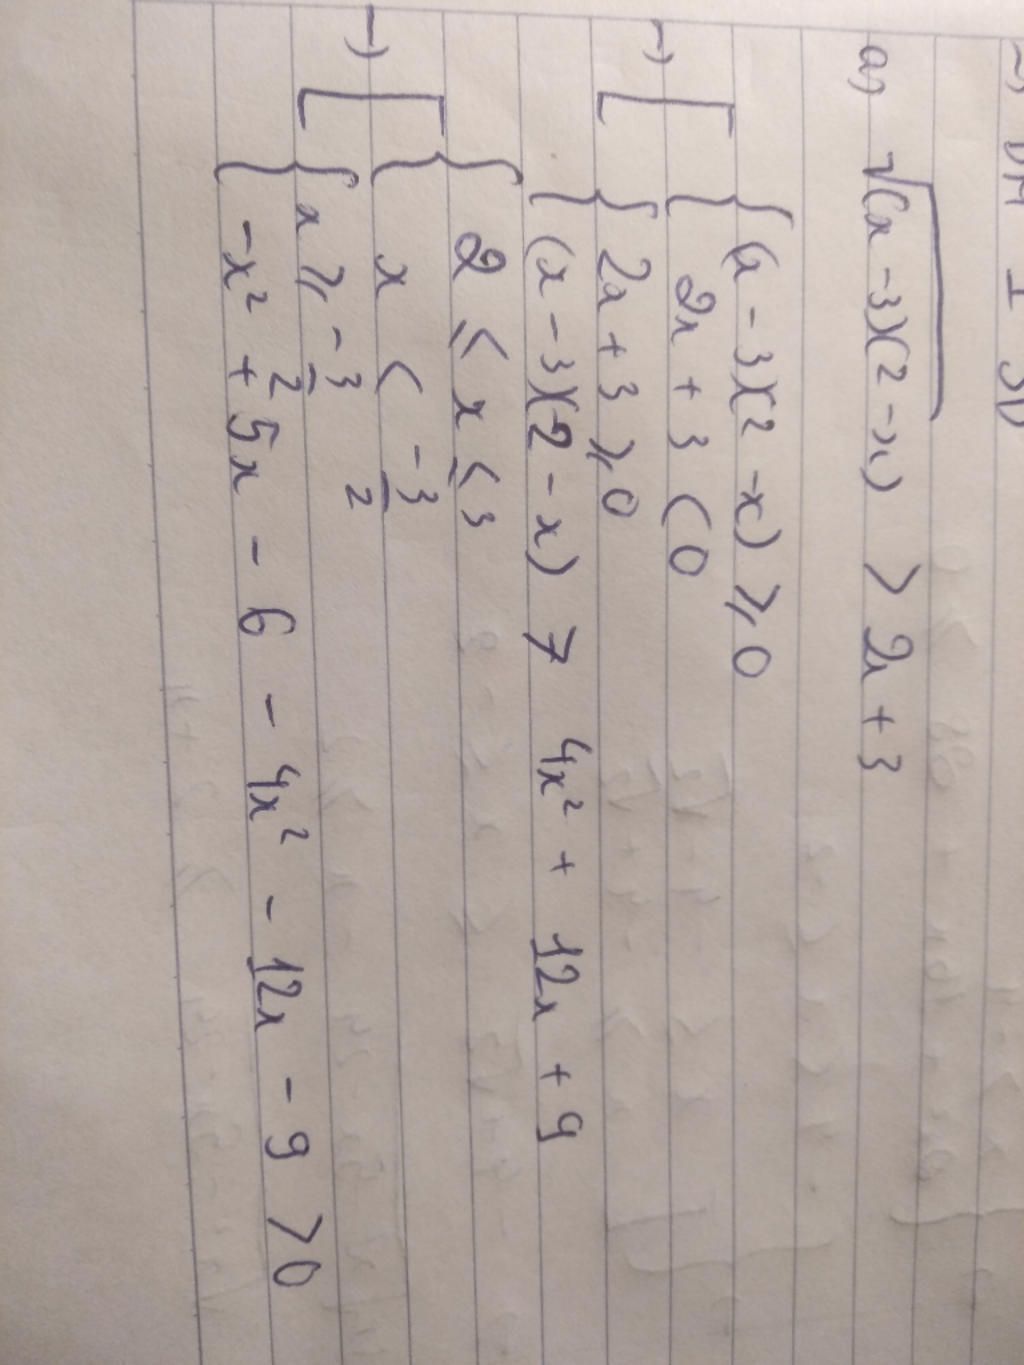 a) √(x - 3)(2 - x) > 2x + 3
→ [ { (x - 3)(2 - x) ⩾ 0
2x + 3 < 0
{ 2x + 3 ⩾ 0
(x - 3)(2 - x) > 4x² + 12x + 9
→ [ { 2 ⩽ x ⩽ 3
x < -3/2
{ x ⩾ -3/2
-x² + 5x - 6 - 4x² - 12x - 9 > 0